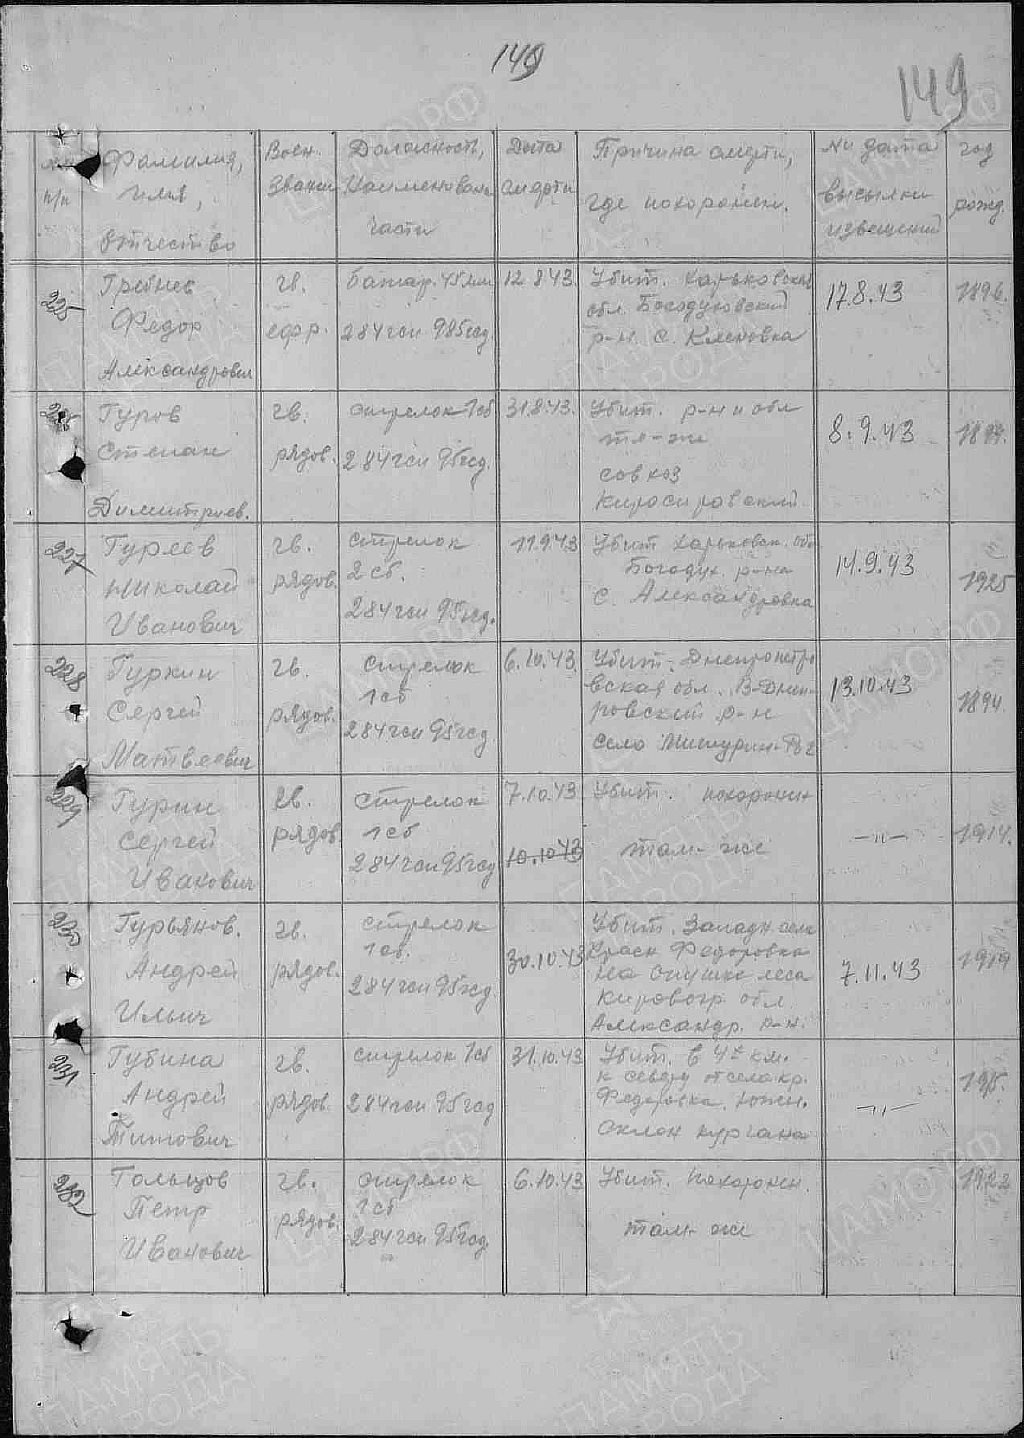 149
149
№№ Фамилия, Воен. Должность, Дата Причина смерти, № и дата год
п/п имя, звание Наименован. смерти где похоронен. высылки рожд.
отчество части извещений
225 Гребнев гв. батар. 45 мм 12.8.43. Убит. Харьковская 17.8.43 1896.
Федор ефр. 284 гсп 95 гсд. обл. Богодуховский
Александрович р-н. с. Кленовка
226 Гуров гв. стрелок 1 сб 31.8.43. Убит. р-н и обл 8.9.43
Степан рядов. 284 гсп 95 гсд. те-же
совхоз
Димитриев.
227 Гуреев гв. стрелок 11.9.43 Убит Харьковск. обл 14.9.43 1925
Николай рядов. 2 сб. Богодух. р-на
Иванович 284 гсп 95 гсд. с. Александровка
228 Гуркин гв. стрелок 6.10.43. Убит. Днепропетро 13.10.43 1894.
Сергей рядов. 1 сб вская обл. В-Днеп-
Матвеевич 284 гсп 95 гсд ровский р-н
село Мишурин-Рог
229 Гурин гв. стрелок 7.10.43 Убит. похоронен -"- 1914.
Сергей рядов. 1 сб там-же
Иванович 284 гсп 95 гсд 10.10.43
230 Гурьянов. гв. стрелок 30.10.43 Убит. Западн села 7.11.43 1919
Андрей рядов. 1 сб. Красн Федоровка
Ильич 284 гсп 95 гсд на опушке леса
Кировогр. обл
Александр. р-н.
231 Губина гв. стрелок 1 сб 31.10.43 Убит. в 4х км. -"-
Андрей рядов. 284 гсп 95 гсд к северу от села Кр.
Титович Федоровка. южн.
склон кургана
232 Гольцов гв. стрелок 6.10.43 Убит. Похоронен. 1923
Петр рядов. 1 сб там-же
Иванович 284 гсп 95 гсд.
ЦАМО.РФ
ПАМЯТЬ
НАРОДА